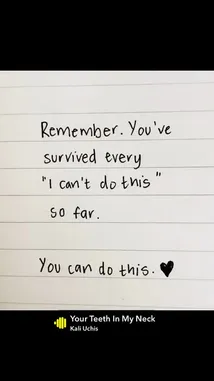 Remember. You've
survived every
"I can't do this"
so far.
You can do this.
Your Teeth In My Neck
Kali Uchis